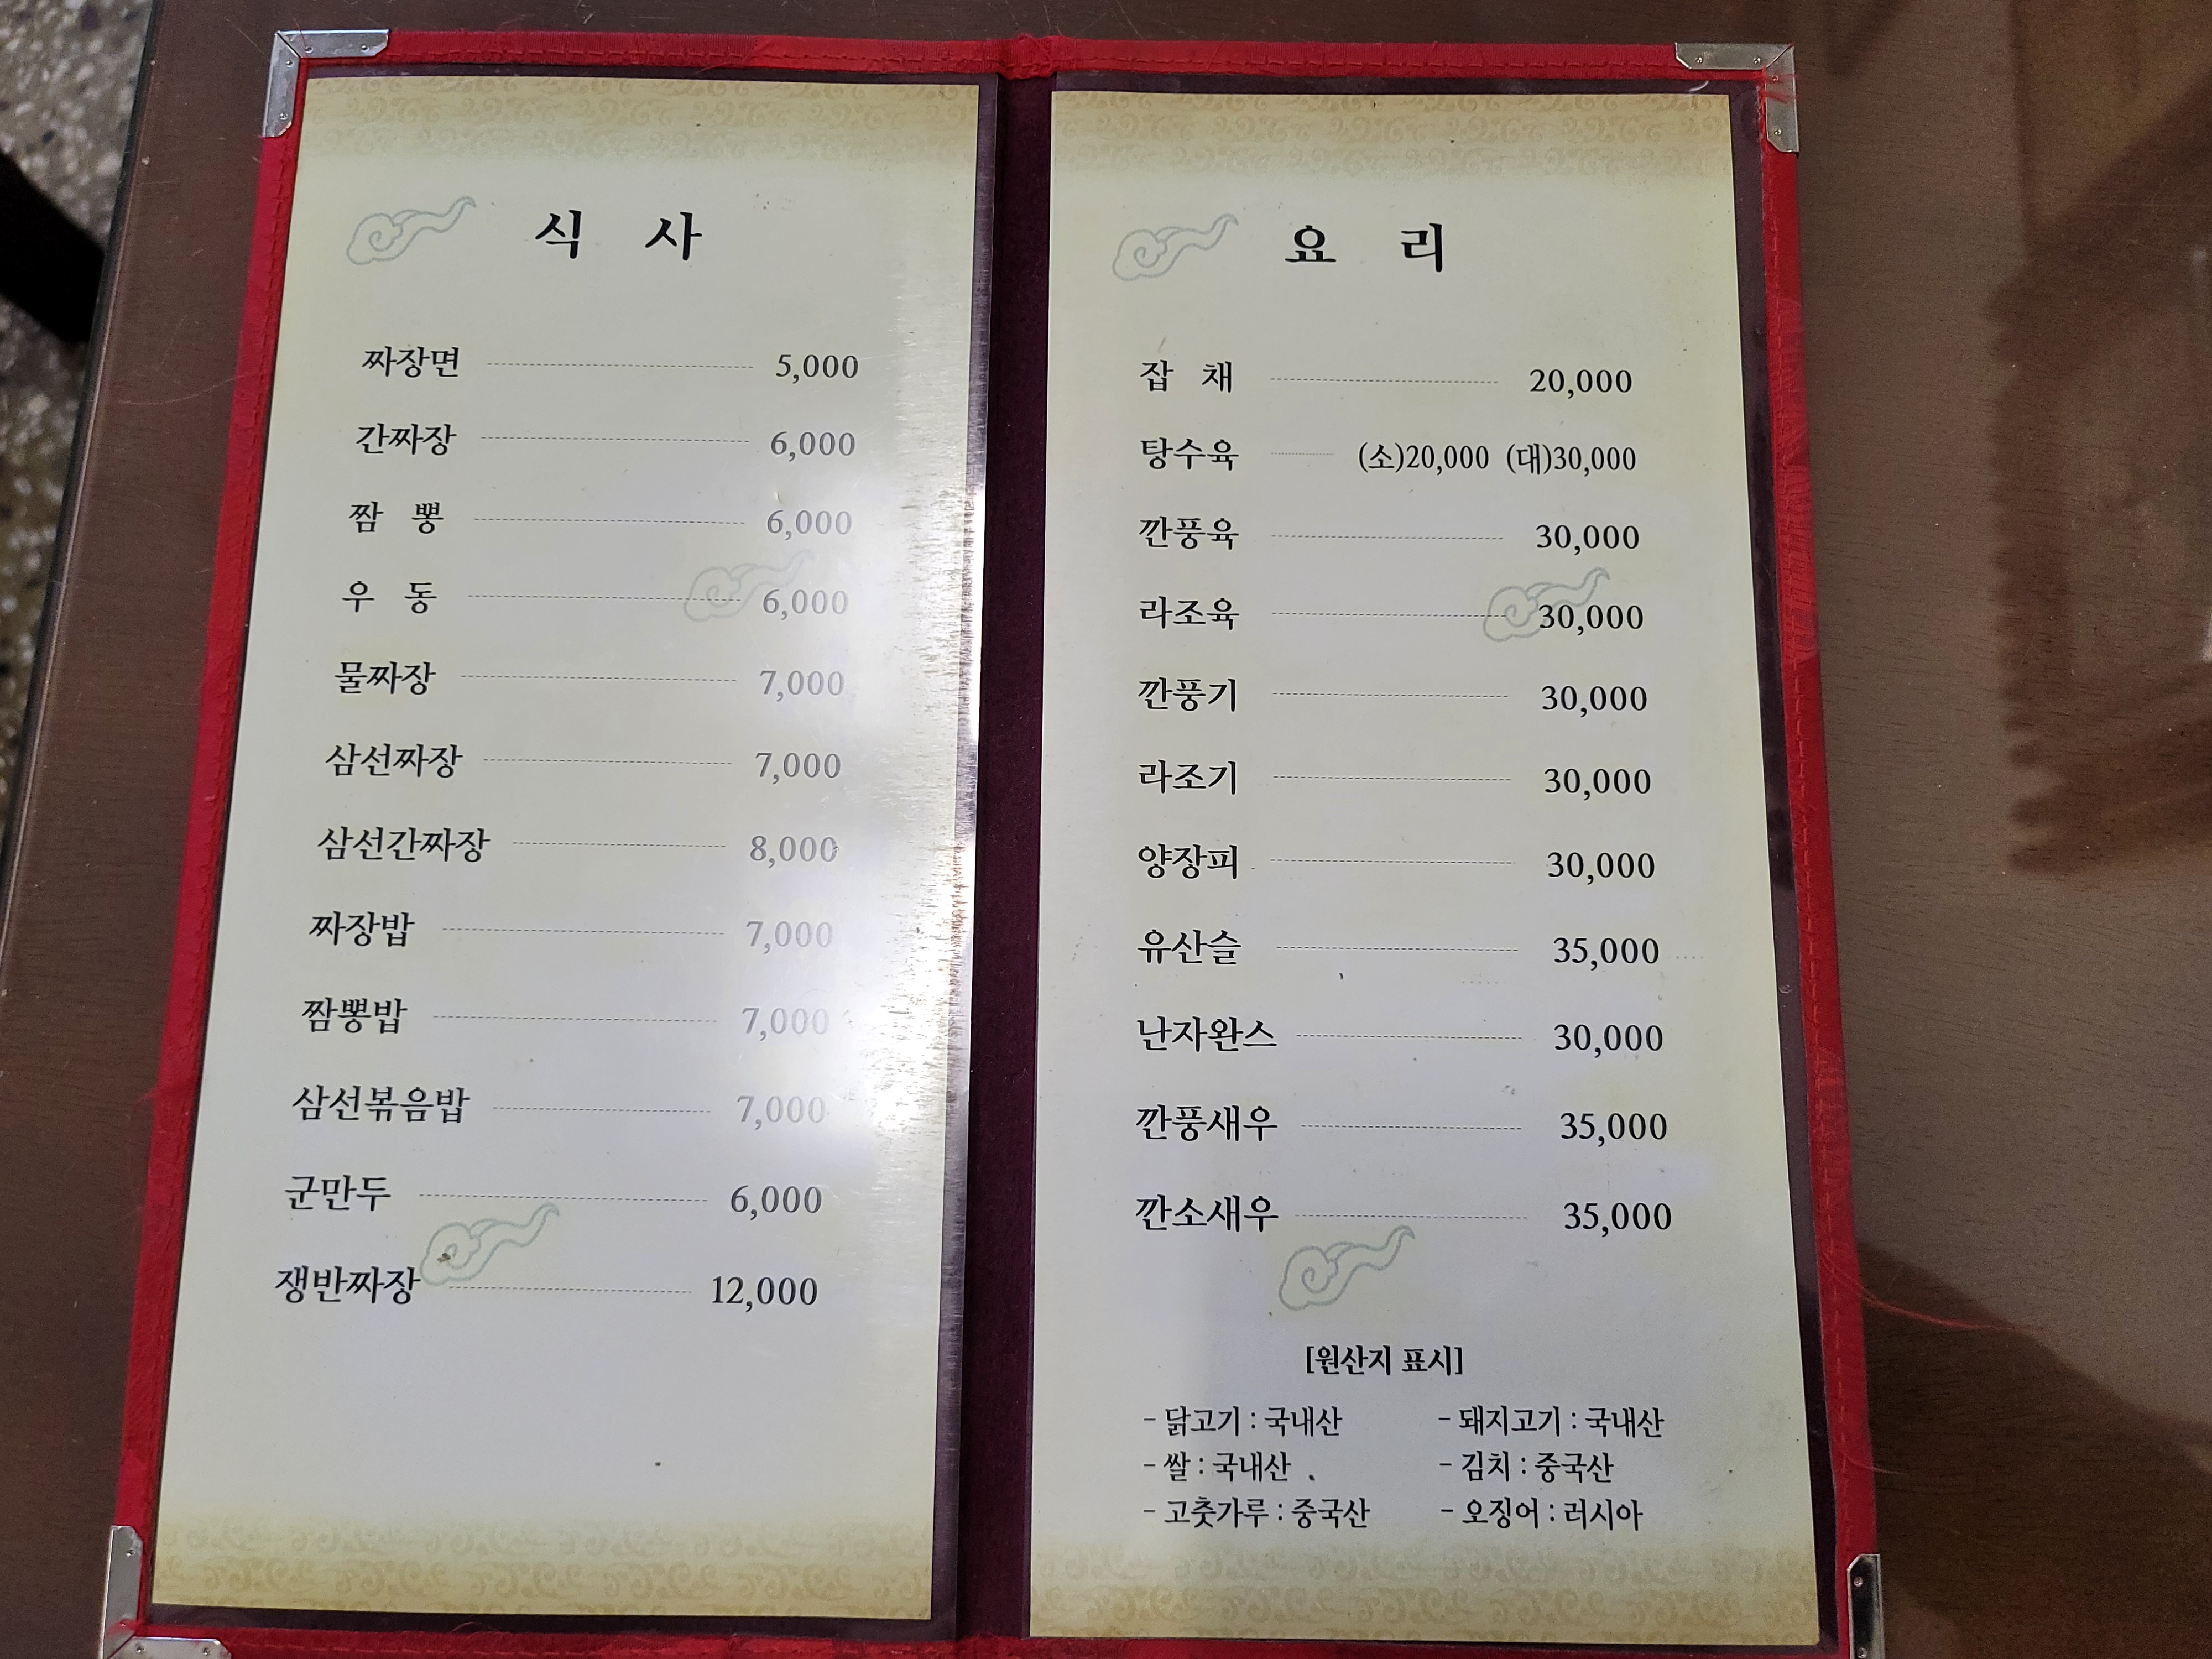 식 사
짜장면 5,000
간짜장 6,000
짬 뽕 6,000
우 동 6,000
물짜장 7,000
삼선짜장 7,000
삼선간짜장 8,000
짜장밥 7,000
짬뽕밥 7,000
삼선볶음밥 7,000
군만두 6,000
쟁반짜장 12,000
요 리
잡 채 20,000
탕수육 (소)20,000 (대)30,000
깐풍육 30,000
라조육 30,000
깐풍기 30,000
라조기 30,000
양장피 30,000
유산슬 35,000
난자완스 30,000
깐풍새우 35,000
깐소새우 35,000
[원산지 표시]
- 닭고기 : 국내산 - 돼지고기 : 국내산
- 쌀 : 국내산 - 김치 : 중국산
- 고춧가루 : 중국산 - 오징어 : 러시아